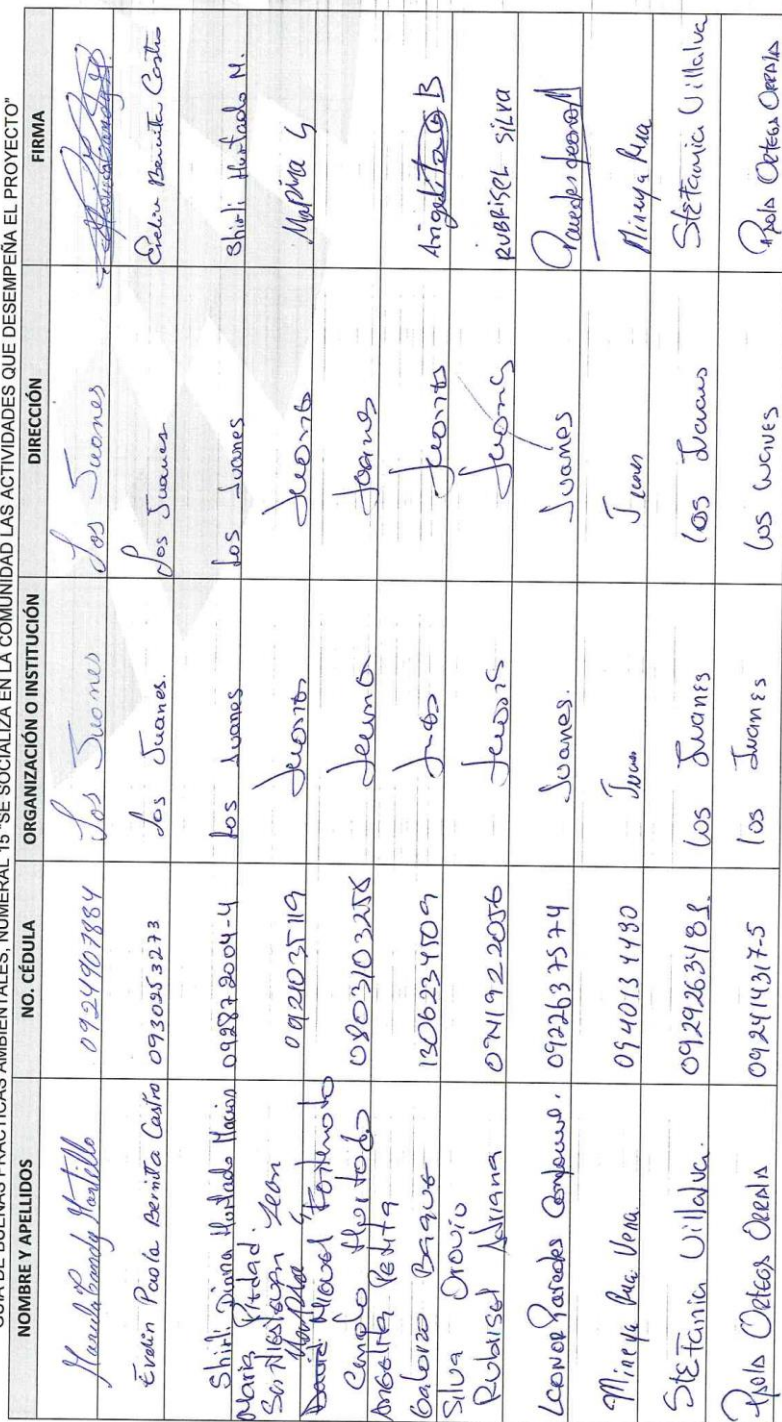 GUÍA DE BUENAS PRÁCTICAS AMBIENTALES, NUMERAL 15 "SE SOCIALIZA EN LA COMUNIDAD LAS ACTIVIDADES QUE DESEMPEÑA EL PROYECTO"
NOMBRE Y APELLIDOS NO. CÉDULA ORGANIZACIÓN O INSTITUCIÓN DIRECCIÓN FIRMA
Candy Martillo 0924907884 Los Juanes Los Juanes
Evelin Paola Bernita Castro 0930253273 Los Juanes. Los Juanes Evelin Bernita Castro
Shirli Diana Hurtado Macias 092872004-4 Los Juanes Los Juanes Shirli Hurtado N.
Maria Piedad
Leon 0921035119 Marina
David Miguel
Hurtado 0803103258
Angelita Petita
Galarzo Baque 1306234509 Angelita B
Silva Orovio
Rubrisel Adriana 0941922056 RUBRISEL SILVA
Leonor Paredes 0922637574 Juanes. Juanes
Mireya Rua Vera 0940134490 Juan Mireya Rua
Stefania Villalva. 0929263481. Los Juanes Los Stefania Villalva
Paola Ortega Orrala 092414317-5 los Juanes los Paola Ortega Orrala